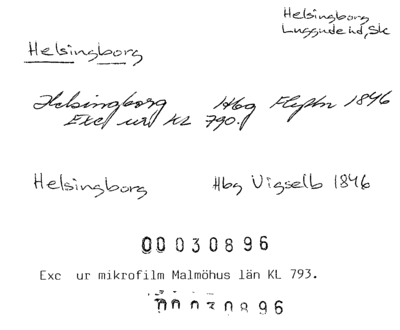 Helsingborg
Luggude hd, Sk
Helsingborg
Helsingborg Hbg Flyttn 1846
Exc ur KL 790.
Helsingborg Hbg Vigselb 1846
00030896
Exc ur mikrofilm Malmöhus län KL 793.